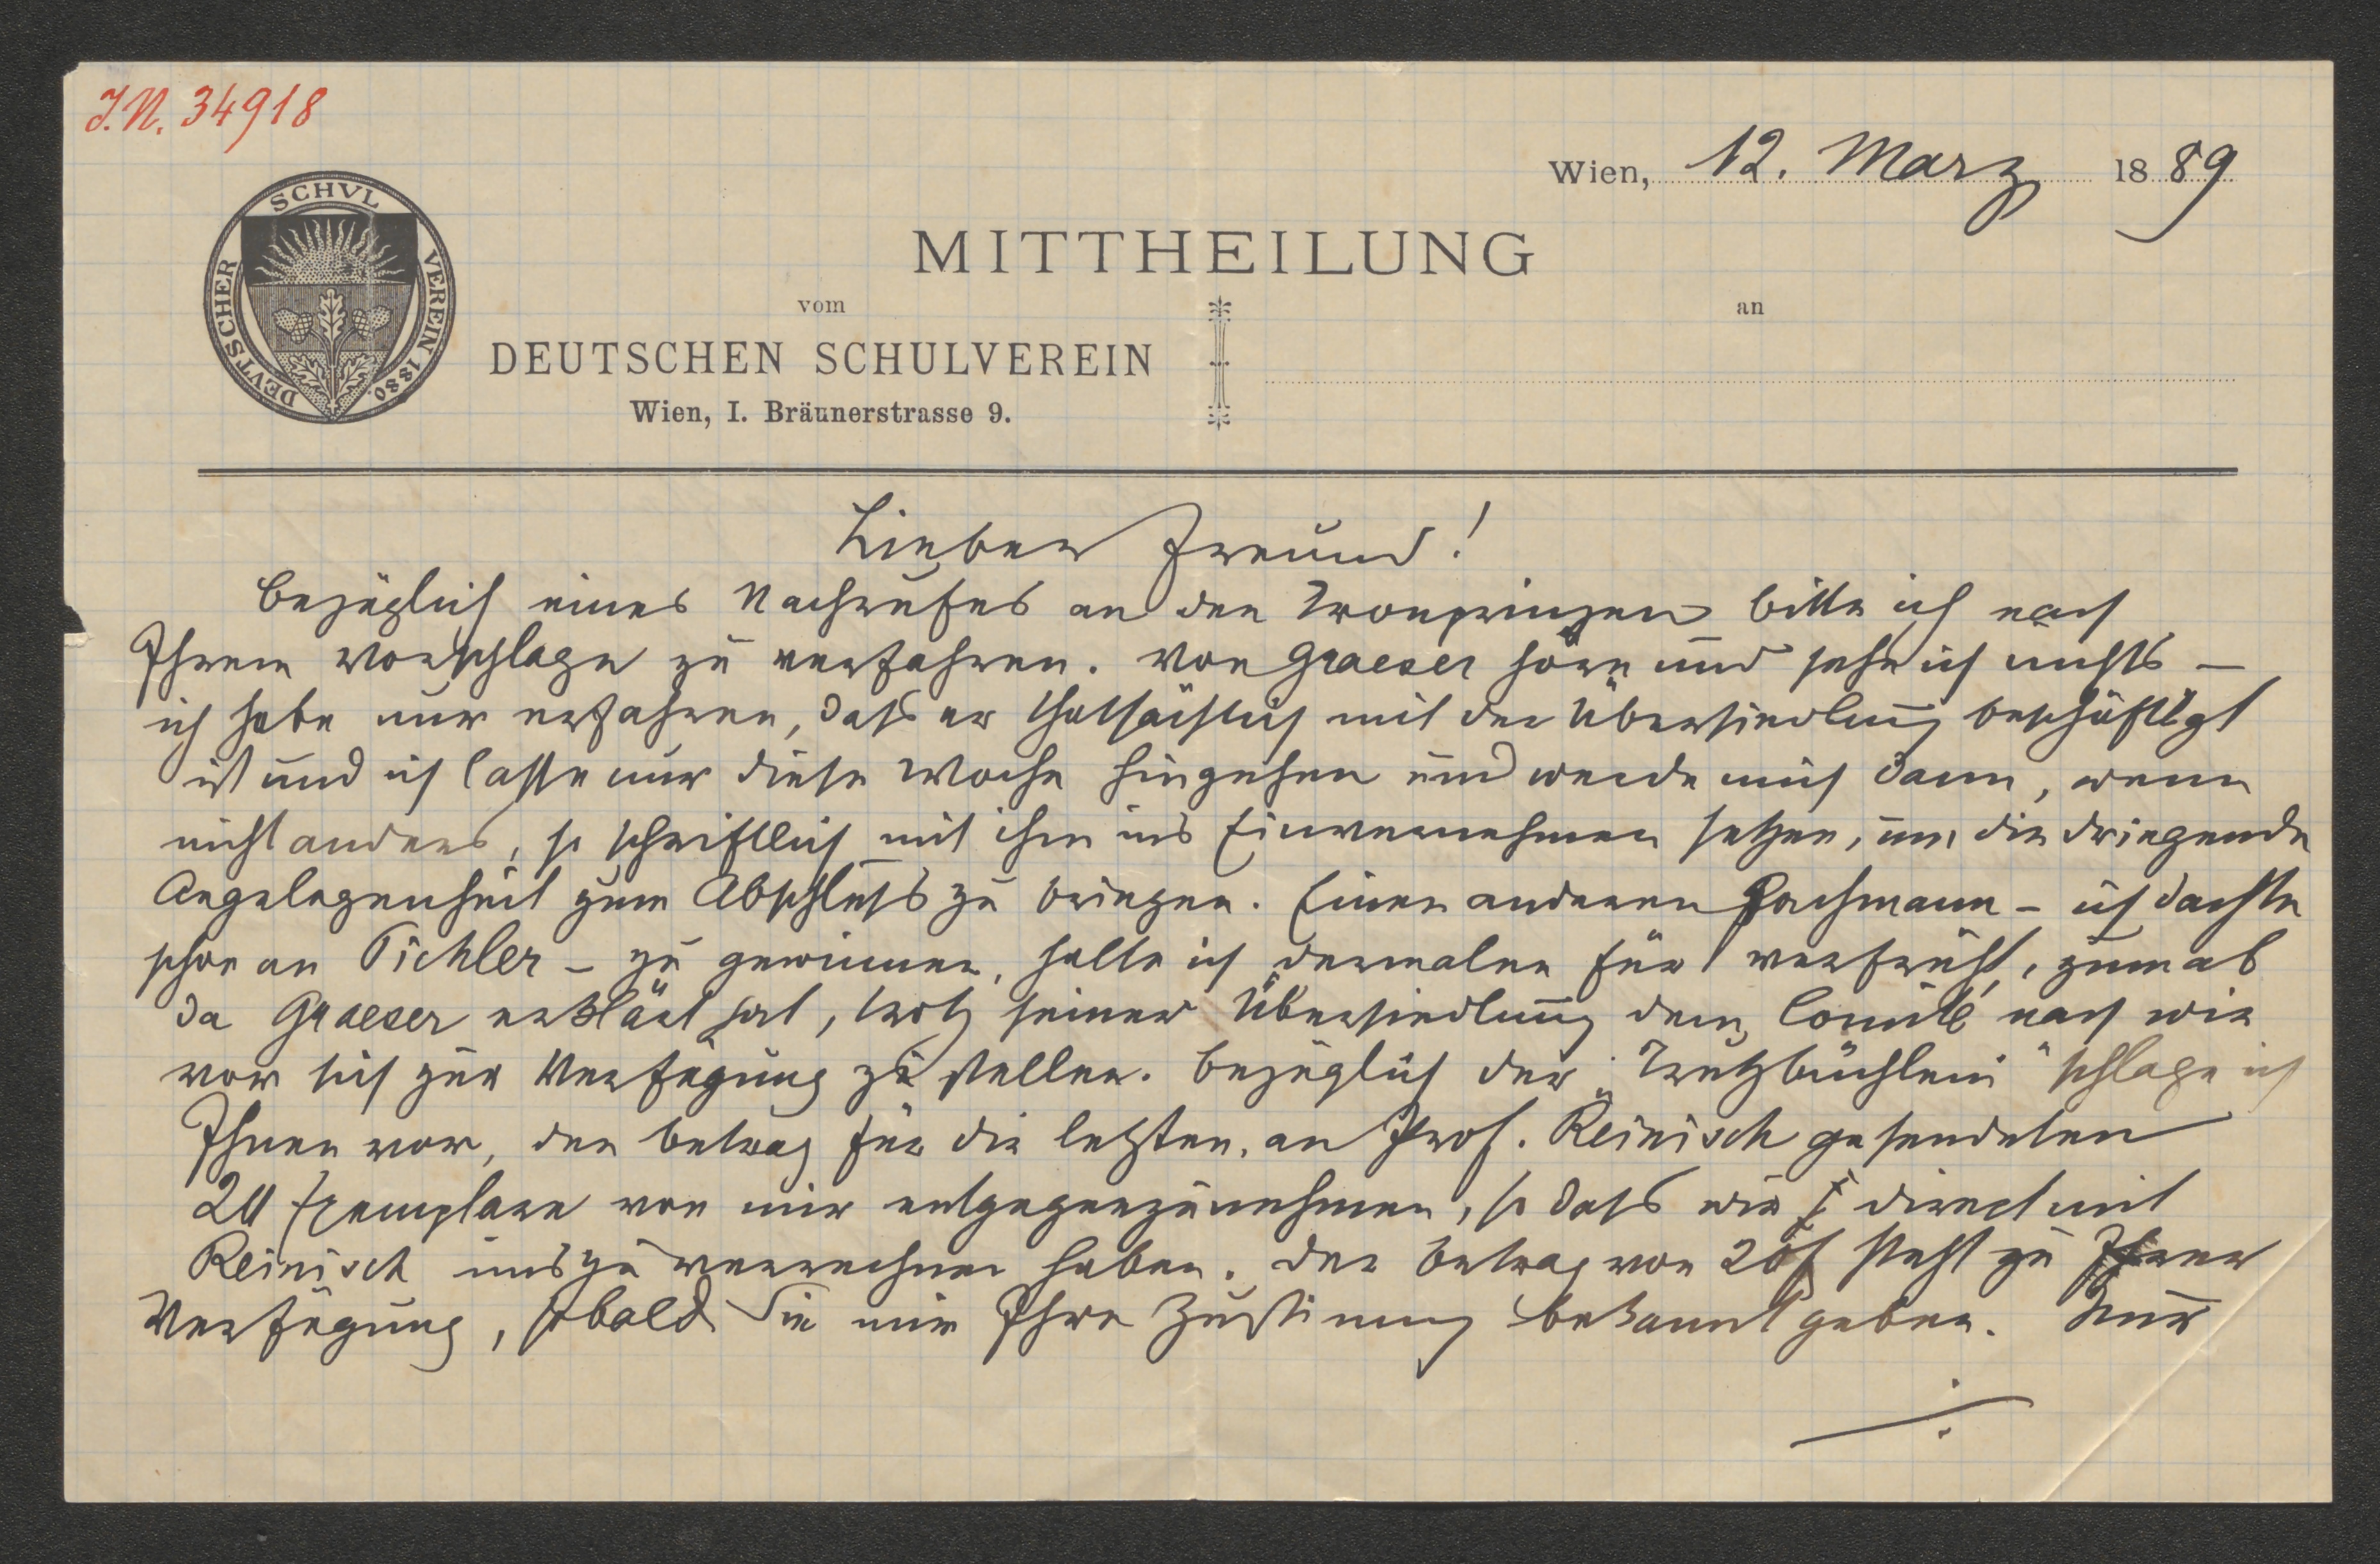 J.N. 34918
Wien, 12. März 1889
DEUTSCHER SCHVL VEREIN 1880.
MITTHEILUNG
vom
an
DEUTSCHEN SCHULVEREIN
Wien, I. Bräunerstrasse 9.
Lieber Freund!
Bezüglich eines Nachrufes an den Kronprinzen bitte ich nach
Ihrem Vorschlage zu verfahren. Von Graeser höre und sehe ich nichts –
ich habe nur erfahren, dass er thatsächlich mit der Übersiedlung beschäftigt
ist und ich lasse nur diese Woche hingehen und werde mich dann, wenn
nicht anders, so schriftlich mit ihm ins Einvernehmen setzen, um die dringende
Angelegenheit zum Abschluss zu bringen. Einen anderen Fachmann – ich dachte
schon an Pichler – zu gewinnen, halte ich dermalen für verfrüht, zumal
da Graeser erklärt hat, trotz seiner Übersiedlung dem Comité nach wie
vor sich zur Verfügung zu stellen. Bezüglich der „Trutzbüchlein" schlage ich
Ihnen vor, den Betrag für die letzten, an Prof. Reinisch gesendeten
20 Exemplare von mir entgegenzunehmen, so dass wir direct mit
Reinisch uns zu verrechnen haben. Der Betrag von 20 f steht zu Ihrer
Verfügung, sobald Sie mir Ihre Zustimung bekannt geben. Nur
./.